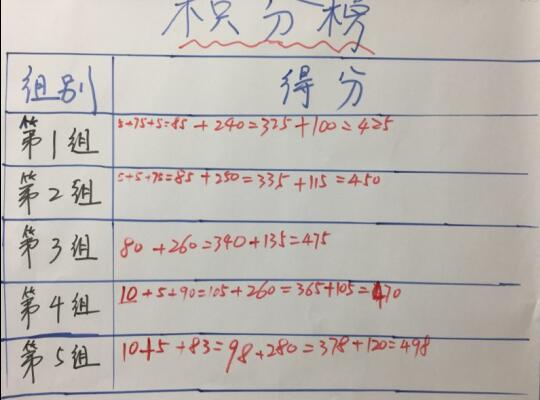 积分榜
组别 得分
第1组 5+75+5=85+240=325+100=425
第2组 5+5+75=85+250=335+115=450
第3组 80+260=340+135=475
第4组 10+5+90=105+260=365+105=470
第5组 10+5+83=98+280=378+120=498